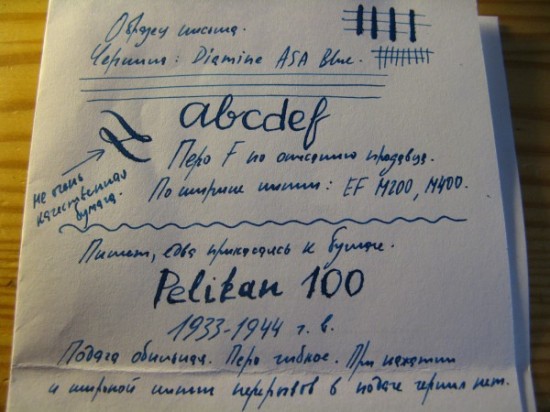 Образец письма.
Чернила: Diamine ASA Blue.
abcdef
не очень
качественная
бумага.
Перо F по описанию продавца.
По ширине линии: EF M200, M400.
Пишет, едва прикасаясь к бумаге.
Pelikan 100
1933-1944 г. в.
Подача обильная. Перо гибкое. При нажатии
и широкой линии перерывов в подаче чернил нет.